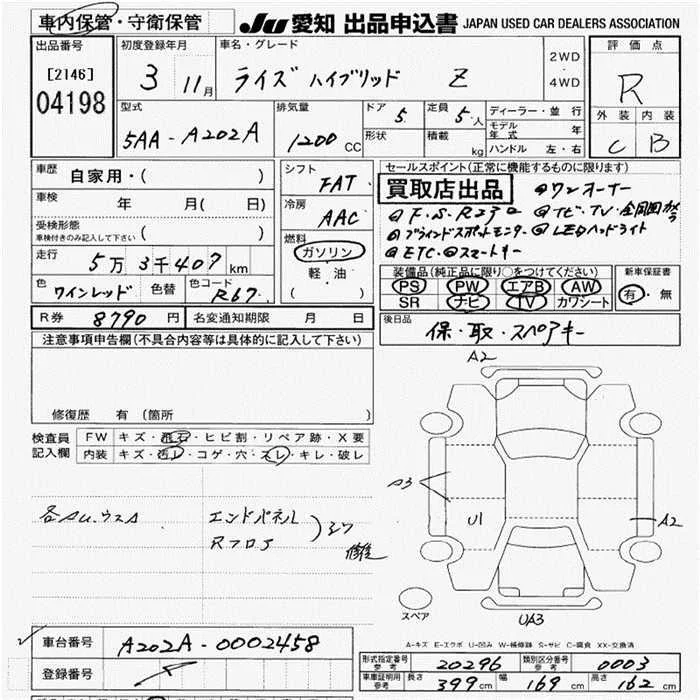 車内保管・守衛保管 JU 愛知 出品申込書 JAPAN USED CAR DEALERS ASSOCIATION
出品番号 初度登録年月 車名・グレード 評価点
[2146] 3 11月 ライズ ハイブリッド Z 2WD・4WD R
04198 型式 排気量 ドア 5 定員 5人 ディーラー・並行 外装 内装
5AA-A202A 1200CC 形状 積載 kg モデル年式 年 C B
ハンドル 左・右
車歴 自家用・( ) シフト FAT セールスポイント(正常に機能するものに限ります)
車検 年 月( 日) 冷房 AAC 買取店出品 ◎ワンオーナー
受検形態 ( ) ◎F・S・Rｶﾒﾗ ◎ナビ・TV・全周囲カメラ
車検付きのみ記入して下さい 燃料 ◎ブラインドスポットモニター ◎LEDヘッドライト
走行 5万3千407km ガソリン ◎ETC ◎スマートキー
軽・油 装備品(純正品に限り○をつけてください) 新車保証書
色 ワインレッド 色替 色コード R67 ( ) PS PW エアB AW 有・無
SR ナビ TV カワシート
R券 8790円 名変通知期限 月 日 後日品 保・取・スペアキー
注意事項申告欄(不具合内容等は具体的に記入して下さい)
修復歴 有 (箇所 )
検査員記入欄 FW キズ・飛石・ヒビ割・リペア跡・X要
内装 キズ・汚レ・コゲ・穴・スレ・キレ・破レ
A2
A3
U1
A2
各AU.ウスA エンドパネル
Rフロア
シワ 修進
スペア
UA3
A-キズ E-エクボ U-凹み W-補修跡 S-サビ C-腐食 XX-交換済
車台番号 A202A-0002458
登録番号
形式指定番号 参考 20296 類別区分番号 参考 0003
車庫証明用 参考 長さ 399cm 幅 169cm 高さ 162cm